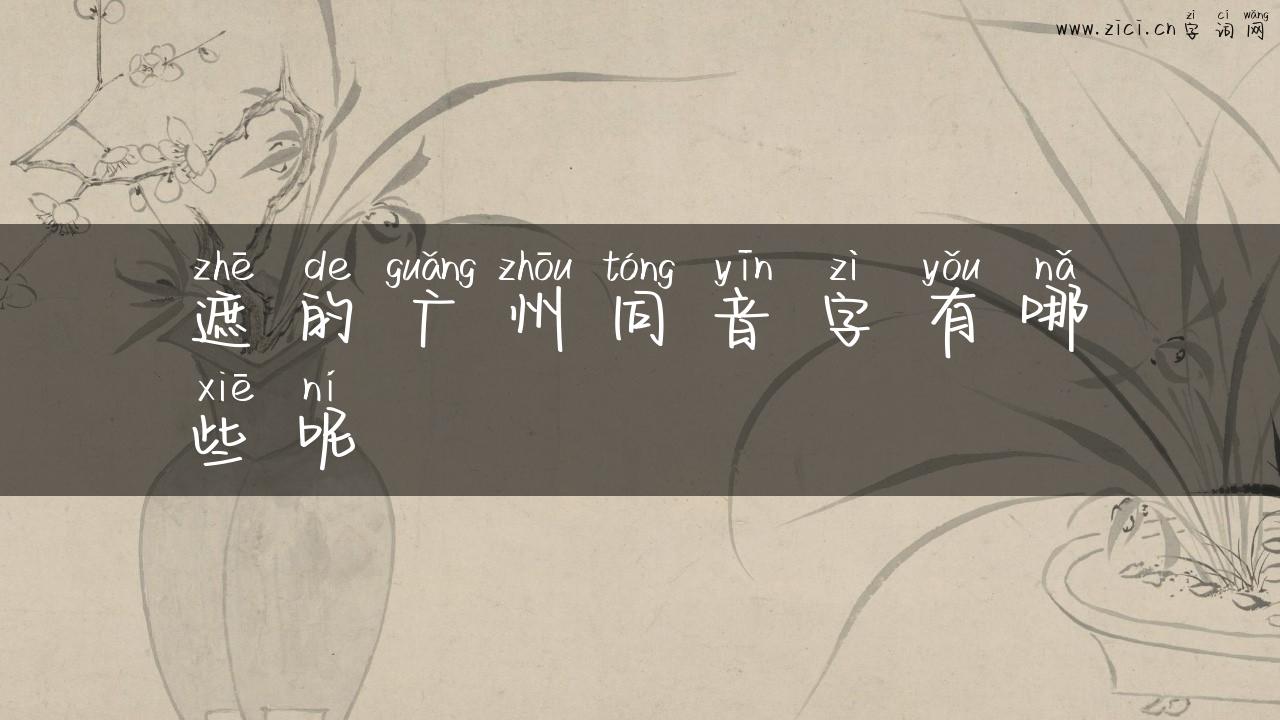 zì cí wǎng
www.zici.cn 字词网
zhē de guǎng zhōu tóng yīn zì yǒu nǎ
遮的广州同音字有哪
xiē ní
些呢